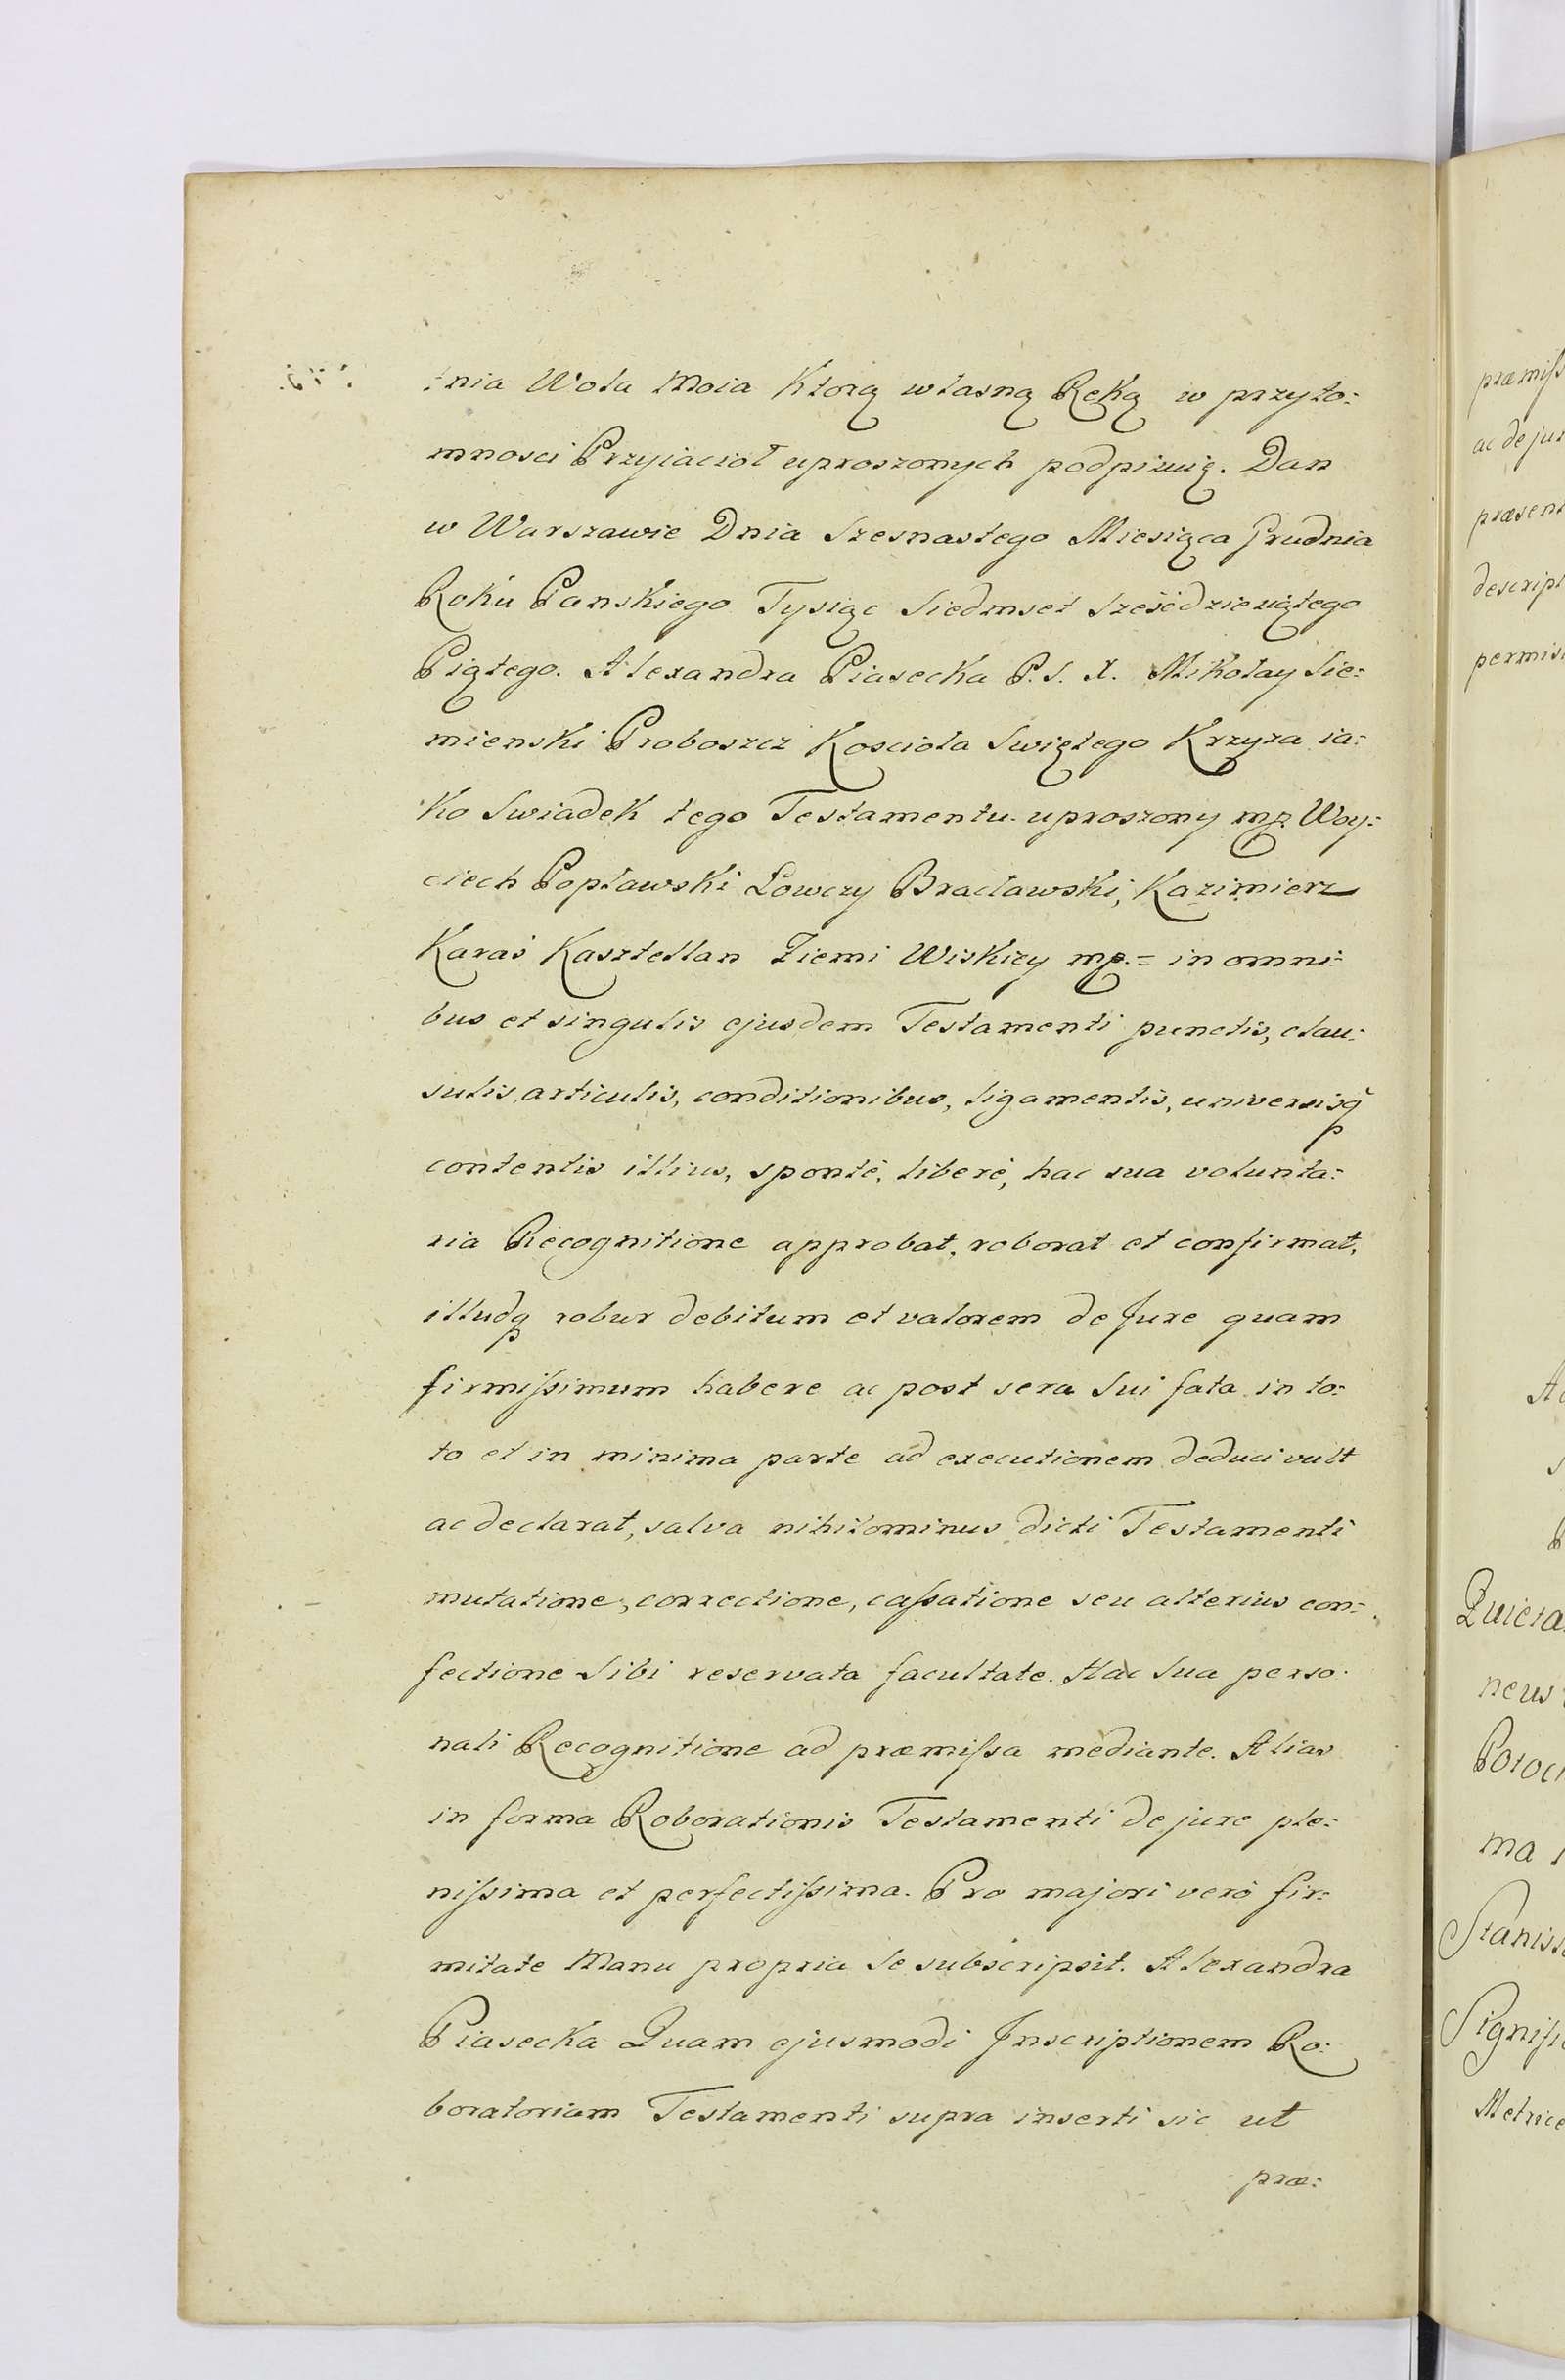 tnia Wola Moia Ktorą własną Ręką w przyto=
mnosci Przyiacioł uproszonych podpisuię. Dan
w Warszawie Dnia Szesnastego Miesiąca Grudnia
Roku Panskiego Tysiąc Siedmset Sześćdziesiątego
Piątego. Alexandra Piasecka P. S. X. Mikołay Sie=
mienski Proboszcz Kosciola Swiętego Krzyza ia=
ko Swiadek tego Testamentu uproszony mp. Woy=
ciech Popławski Łowczy Bracławski, Kazimierz
Karaś Kasztellan Ziemi Wiskiey mp. = in omni=
bus et singulis ejusdem Testamenti punctis, clau=
sulis, articulis, conditionibus, ligamentis, universisq
contentis illius, spontè, liberè, hac sua volunta=
ria Recognitione approbat, roborat et confirmat,
illudq robur debitum et valorem de Jure quam
firmissimum habere ac post sera Sui fata in to=
to et in minima parte ad executionem deduci vult
ac declarat, salva nihilominus dicti Testamenti
mutatione, correctione, cassatione seu alterius con=
fectione Sibi reservata facultate. Hac Sua perso=
nali Recognitione ad præmissa mediante. Alias
in forma Roborationis Testamenti de jure ple=
nissima et perfectissima. Pro majori verò fir=
mitate Manu propria Se subscripsit. Alexandra
Piasecka Quam ejusmodi Inscriptionem Ro=
boratoriam Testamenti supra inserti sic ut
præ=
præmiss
ac de jur
præsent
descript
permis
Quieta
neus
Potoc
ma
Stanis
Signifi
Metrice